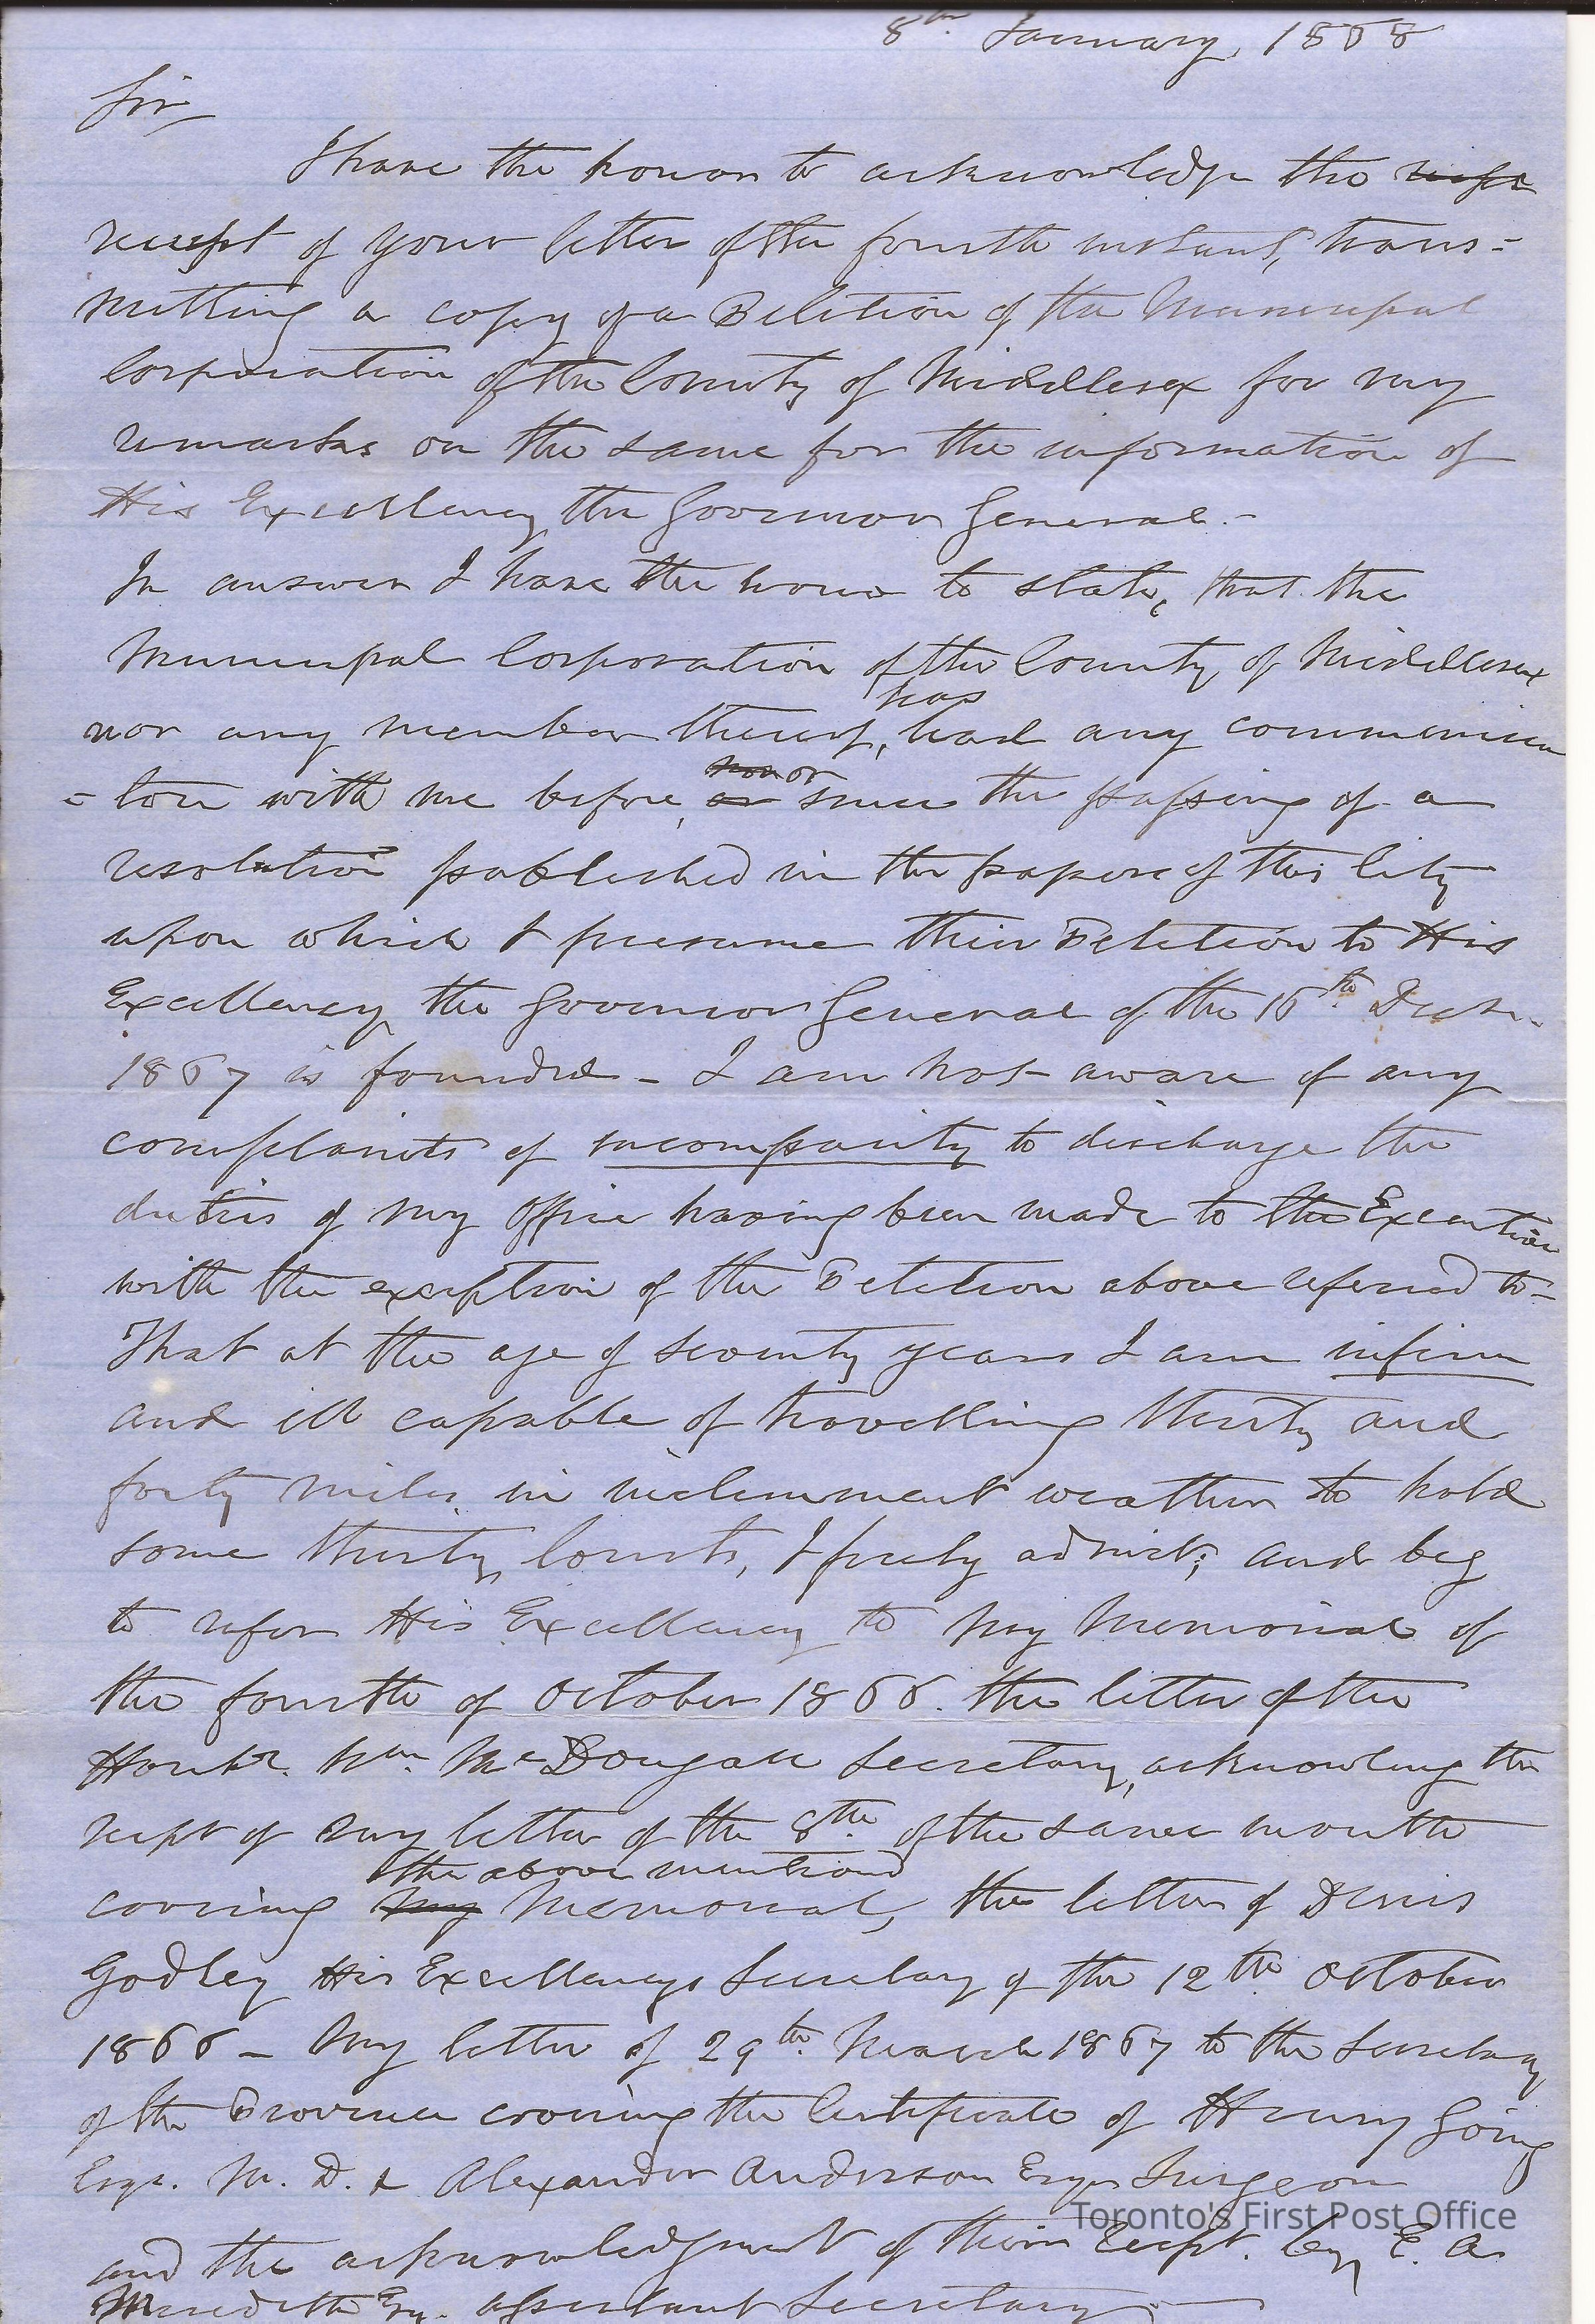 8th January, 1868
Sir
I have the honor to acknowledge the
receipt of your letter of the fourth instant, trans=
mitting a copy of a Petition of the Municipal
Corporation of the County of Middlesex for my
remarks on the same for the information of
His Excellency the Governor General.-
In answer I have the honor to state, that the
Municipal Corporation of the County of Middlesex
has
nor any member thereof, had any communica
nor or
=tion with me before, or since the passing of a
resolution published in the papers of this City
upon which I presume their Petition to His
Excellency the Governor General of the 16th Decr.
1867 is founded - I am not aware of any
complaints of incompacity to discharge the
duties of my Office having been made to the Executive
with the exception of the Petition above referred to-
That at the age of seventy years I am infirm
and ill capable of travelling thirty and
forty miles in inclemment weather to hold
some thirty Courts, I freely admit; and beg
to refer His Excellency to my Memorial of
the fourth of October 1866. the letter of the
Honble. Wm. McDougall Secretary, acknowleng the
reipt of my letter of the 8th of the same month
the above mentiond
covering my Memorial, the letter of Denis
Godley His Excellencys Secretary of the 12th October
1866 - My letter of 29th March 1867 to the Secretary
of the Province covering the Certificate of Henry Going
Esqr. M. D. & Alexander Anderson Esqr Surgeon
and the acknowledgment of their Receipt. by E. A.
Meredith Esqr. assistant Secretary -
Toronto's First Post Office